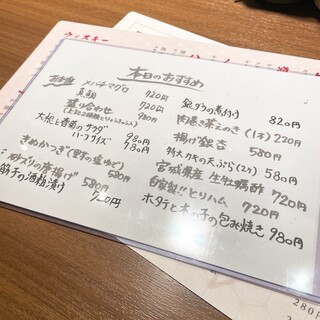 ウィスキー
本日のおすすめ
刺身 メバチマグロ 720円
真鯛 720円
盛り合わせ 980円
大根と香菊のサラダ 980円
ハーフサイズ 780円
きぬかつぎ(野の塩ゆで) 580円
砂ズリの唐揚げ 580円
筋子の酒粕漬け 720円
銀ダラの煮付け 820円
肉巻き茶えのき(1本) 220円
揚げ銀杏 580円
特大カキの天ぷら(2ケ) 580円
宮城県産 生牡蠣酢 720円
自家製!!とりハム 720円
ホタテと木の子の包み焼き 980円
280円